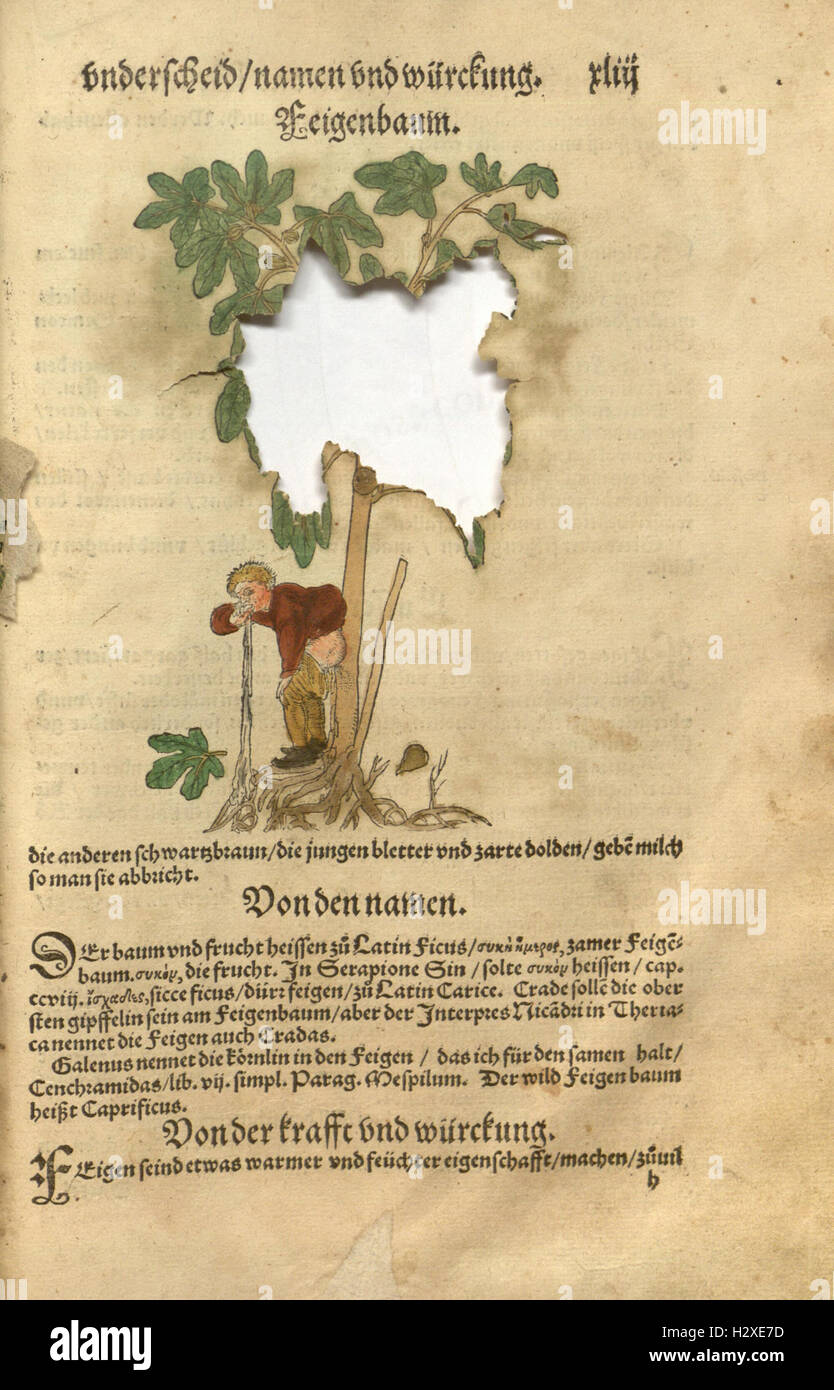 vnderscheid/namen vnd würckung. xliij
Feigenbaum.
die anderen schwartzbraun/die jungen bletter vnd zarte dolden/gebẽ milch
so man sie abbricht.
Von den namen.
DEr baum vnd frucht heissen zů Latin Ficus/συκῆ ἥμερος, zamer Feigẽ-
baum.συκόν, die frucht. In Serapione Sin/solte συκόν heissen/cap.
ccviij. ἰσχάδες, sicce ficus/dürr feigen/zů Latin Carice. Crade sollẽ die ober
sten gipffelin sein am Feigenbaum/aber der Interpres Nicãdri in Theria-
ca nennet die Feigen auch Cradas.
Galenus nennet die körnlin in den Feigen/das ich für den samen halt/
Cenchramidas/lib. vij. simpl. Parag. Mespilum. Der wild Feigenbaum
heißt Caprificus.
Von der krafft vnd würckung.
FEigen seind etwas warmer vnd feüchter eigenschafft/machen/zůuil
h
alamy stock photo
alamy
H2XE7D
www.alamy.com